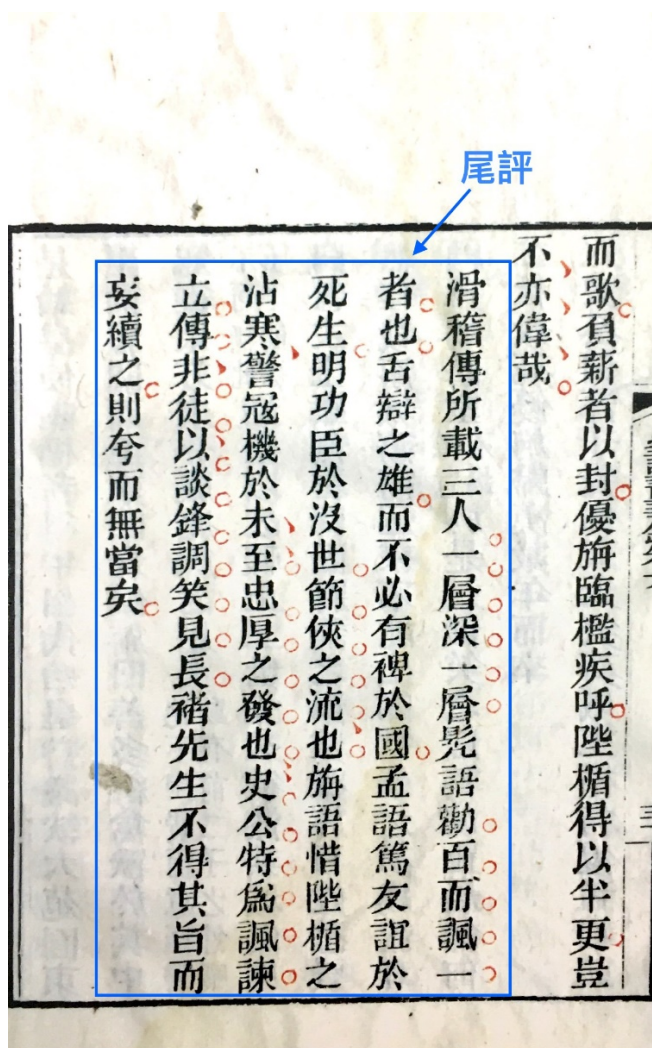 尾評
而歌負薪者以封優旃臨檻疾呼陛楯得以半更豈
不亦偉哉
滑稽傳所載三人一層深一層髡語勸百而諷一
者也舌辯之雄而不必有裨於國孟語篤友誼於
死生明功臣於沒世節俠之流也旃語惜陛楯之
沾寒警寇機於未至忠厚之發也史公特爲諷諫
立傳非徒以談鋒調笑見長褚先生不得其旨而
妄續之則夸而無當矣